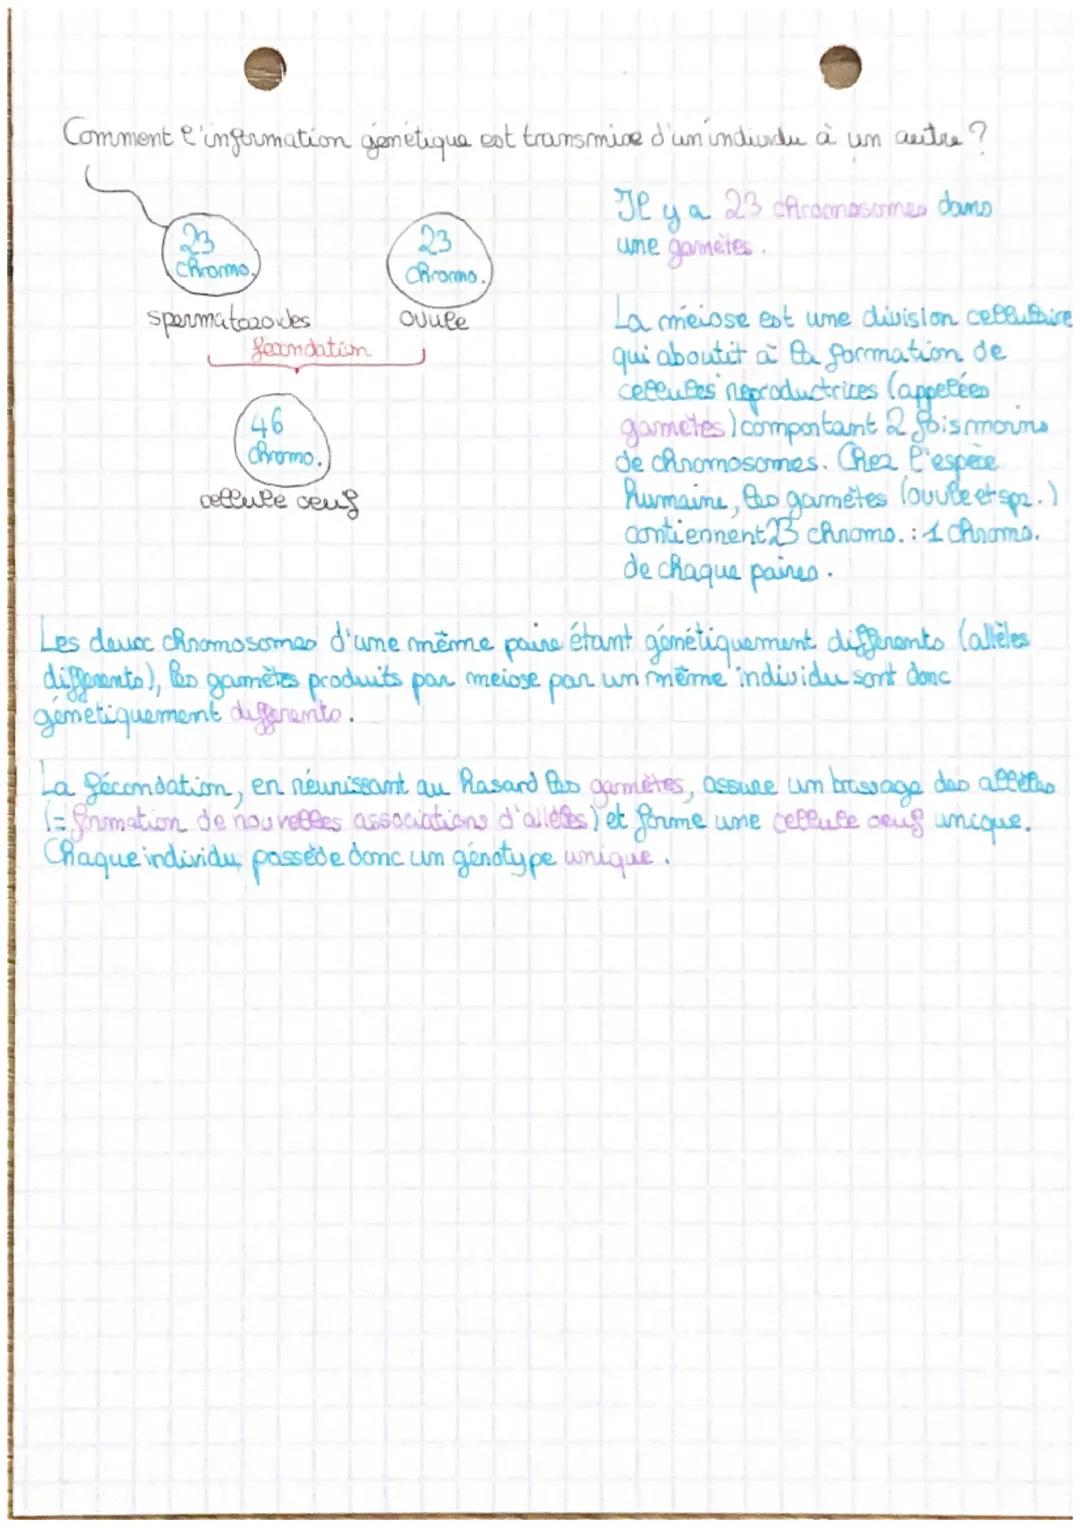 Comment l'information génétique est transmise d'un individu à un autre ?
23
chromo.
spermatozoïdes
23
chromo.
ovule
fécondation
46
chromo.
cellule oeuf
Il y a 23 chromosomes dans
une gamètes.
La méiose est une division cellulaire
qui aboutit à la formation de
cellules reproductrices (appelées
gamètes) comportant 2 fois moins
de chromosomes. Chez l'espèce
humaine, les gamètes (ovule et spz.)
contiennent 23 chromo. : 1 chromo.
de chaque paires.
Les deux chromosomes d'une même paire étant génétiquement différents (allèles
différents), les gamètes produits par meiose par un même individu sont donc
génétiquement différents.
La fécondation, en réunissant au hasard les gamètes, assure un brassage des allèles
(= formation de nouvelles associations d'allèles) et forme une cellule oeuf unique.
Chaque individu possède donc un génotype unique.